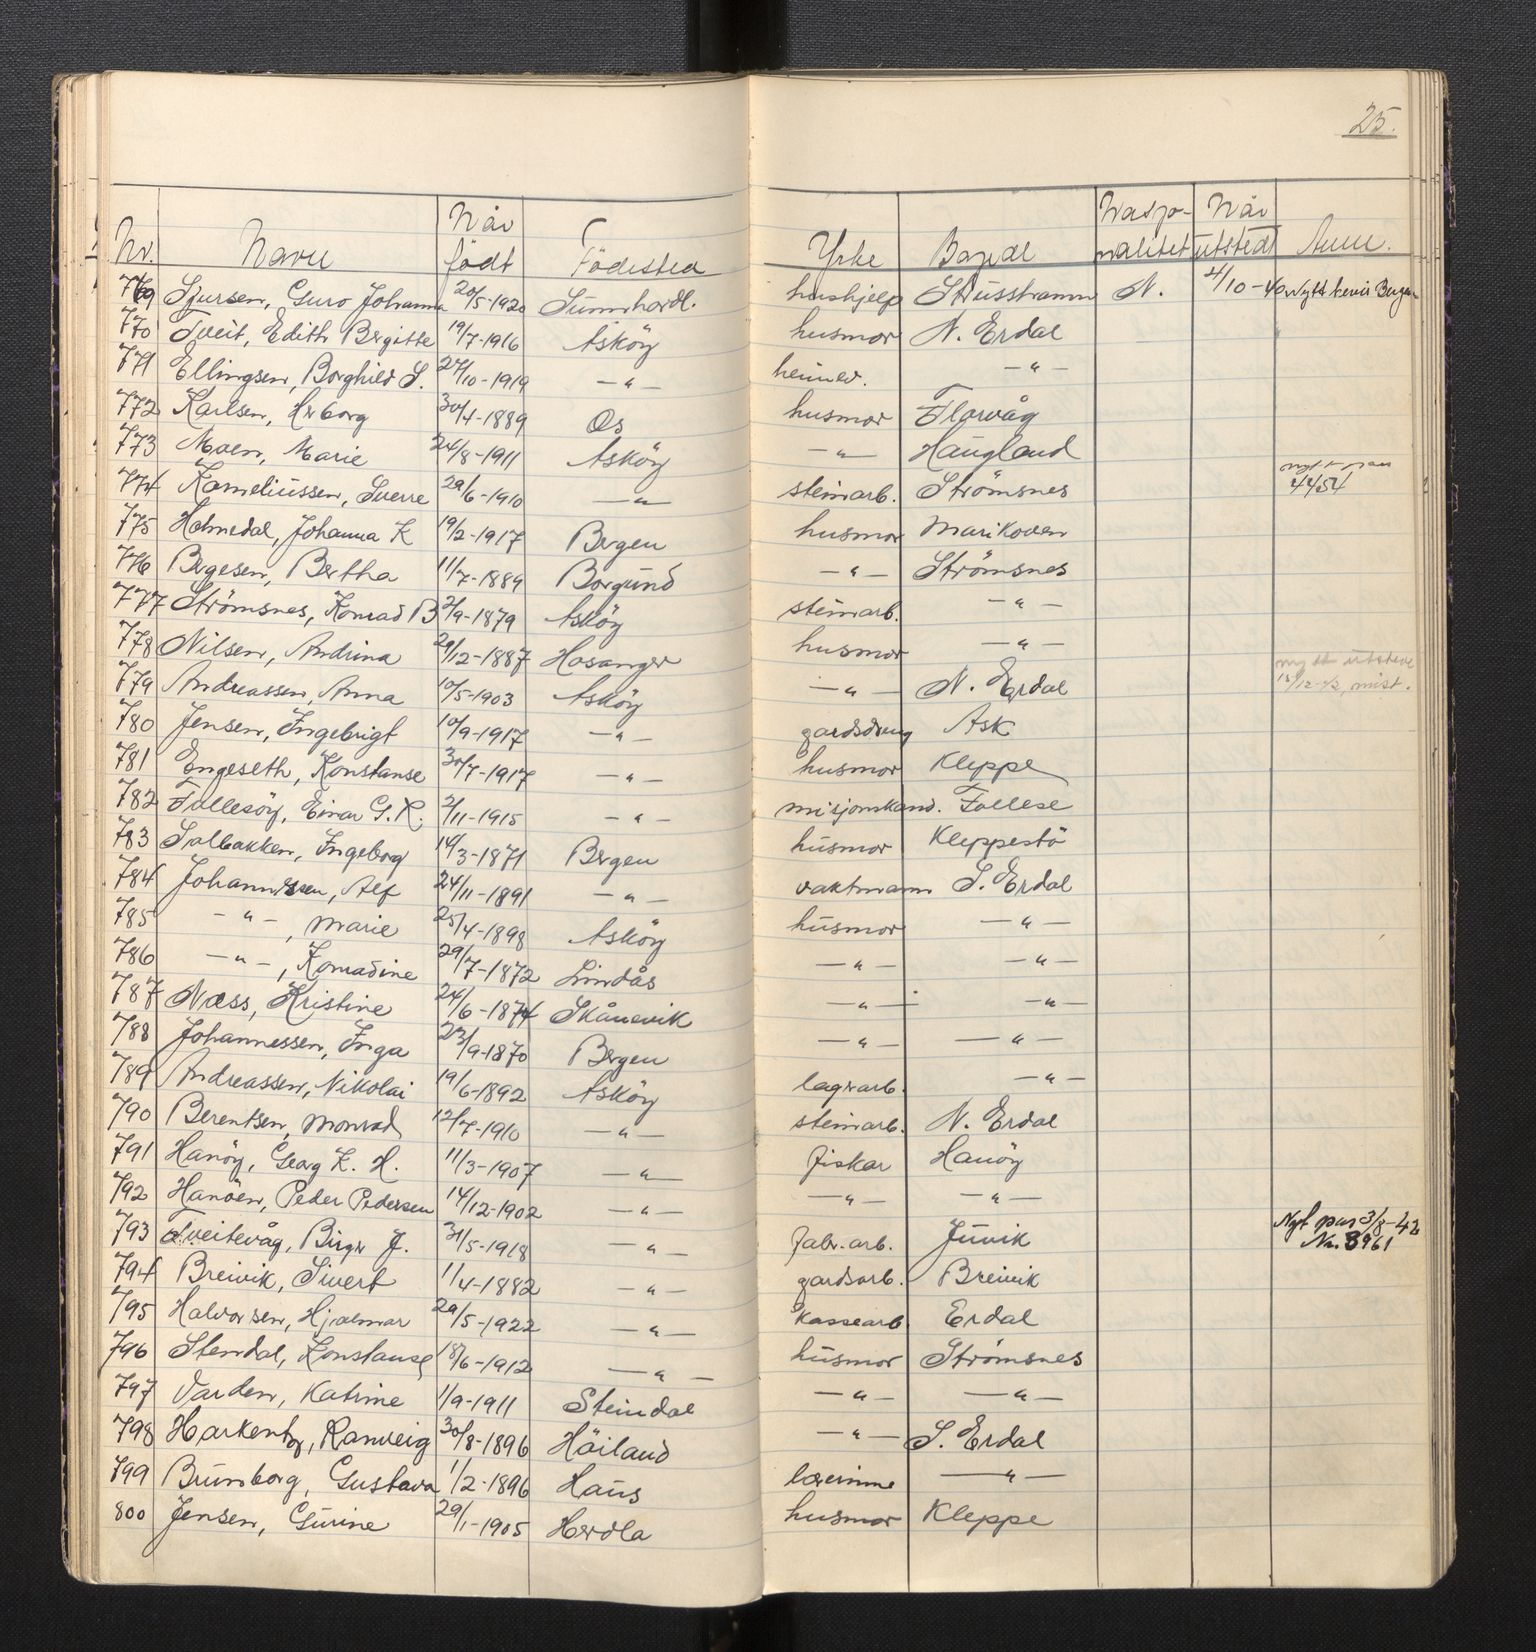 25.
Nr. Navn Når født Födested Yrke Bopel Nasjonalitet Når utstedt Anm.
769 Sjursen, Guro Johanna 20/5-1920 Sunnhordl. hushjelp Strusshamn N. 4/10-40 Nytt bevis Bergen
770 Tveit, Edith Bergitte 19/7-1916 Asköy husmor N. Erdal
771 Ellingsen, Borghild S. 27/10-1919 —"— heimev. —"—
772 Karlsen, Herborg 30/4-1889 Os husmor Florvåg
773 Moen, Marie 24/8-1911 Asköy —"— Haugland
774 Korneliussen, Sverre 29/6-1910 —"— steinarb. Strömsnes nytt pass 4454
775 Holmedal, Johanna K 19/2-1917 Bergen husmor Marikoven
776 Bergesen, Bertha 11/7-1889 Borgund —"— Strömsnes
777 Strömsnes, Konrad B 2/9-1879 Asköy steinarb. —"—
778 Nilsen, Andrina 29/12-1887 Hosanger husmor —"—
779 Andreassen, Anna 10/5-1903 Asköy —"— N. Erdal nytt utstedt 15/12-42, mist.
780 Jensen, Ingebrigt 10/9-1917 —"— gardsdreng Ask
781 Engeseth, Konstanse 30/7-1917 —"— husmor Kleppe
782 Follesöy, Einar G. K. 2/11-1915 —"— misjonskand. Follese
783 Solbakken, Ingeborg 14/3-1871 Bergen husmor Kleppestö
784 Johannessen, Alf 24/11-1891 —"— vaktmann S. Erdal
785 —"—, Marie 25/4-1898 Asköy husmor —"—
786 —"—, Konradine 29/7-1872 Lindås —"— —"—
787 Næss, Kristine 24/6-1874 Skånevik —"— —"—
788 Johannessen, Inga 23/9-1870 Bergen —"— —"—
789 Andreassen, Nikolai 19/6-1892 Asköy lagerarb. —"—
790 Berentsen, Monrad 12/7-1910 —"— steinarb. N. Erdal
791 Hanöy, Georg K. H. 11/3-1907 —"— fiskar Hanöy
792 Hanöen, Peder Pedersen 14/12-1902 —"— —"— —"—
793 Tveitevåg, Birger J. 31/5-1918 —"— fabr.arb. Juvik Nyt pas 3/8-42 Nr. 3961
794 Breivik, Sivert 1/4-1882 —"— gardsarb. Breivik
795 Halvorsen, Hjalmar 29/5-1922 —"— kassearb. Erdal
796 Stendal, Konstanse 18/6-1912 —"— husmor Strömsnes
797 Varden, Katrine 1/9-1911 Steindal —"— —"—
798 Harkentøy, Ranveig 30/8-1896 Höiland —"— S. Erdal
799 Brunborg, Gustava 1/2-1896 Haus lærerinne —"—
800 Jensen, Gurine 29/1-1905 Herdla husmor Kleppe